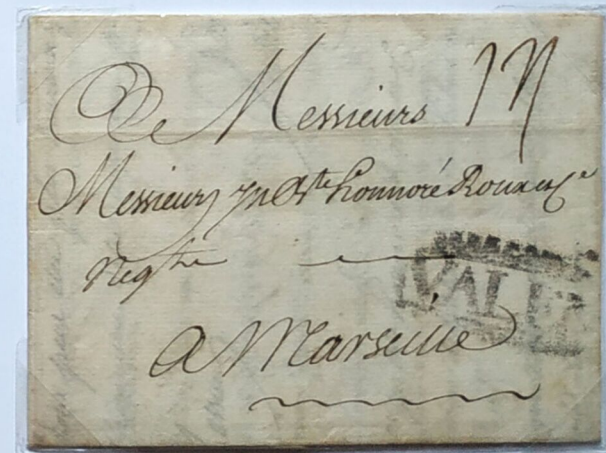 A Messieurs 17
Messieurs Jn Bte honnoré Roux et Ce
Negts
a Marseille
VALE